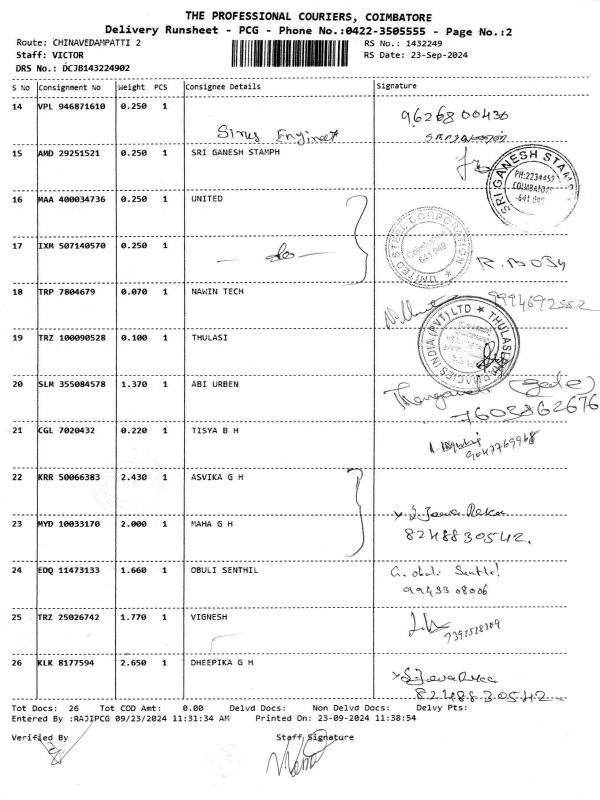 THE PROFESSIONAL COURIERS, COIMBATORE
Delivery Runsheet - PCG - Phone No.:0422-3505555 - Page No.:2
Route: CHINAVEDAMPATTI 2 RS No.: 1432249
Staff: VICTOR RS Date: 23-Sep-2024
DRS No.: DCJB143224902
S No Consignment No Weight PCS Consignee Details Signature
14 VPL 946871610 0.250 1 9626800430
15 AMD 29251521 0.250 1 SRI GANESH STAMPH
SRI GANESH STAMP
PH:2234457
COIMBATORE
641 049
16 MAA 400034736 0.250 1 UNITED
UNITED STEEL CORPORATION
Coimbatore
641 049
17 IXM 507140570 0.250 1
18 TRP 7804679 0.070 1 NAWIN TECH 9994692552
19 TRZ 100090528 0.100 1 THULASI
INDIA (PVT) LTD ★ THULASI
20 SLM 355084578 1.370 1 ABI URBEN
7603862676
21 CGL 7020432 0.220 1 TISYA B H
9047769968
22 KRR 50066383 2.430 1 ASVIKA G H
23 MYD 10033170 2.000 1 MAHA G H
8248830542.
24 EDQ 11473133 1.660 1 OBULI SENTHIL G. obuli Senthil
99433 08006
25 TRZ 25026742 1.770 1 VIGNESH
26 KLK 8177594 2.650 1 DHEEPIKA G H
82488 30542
Tot Docs: 26 Tot COD Amt: 0.00 Delvd Docs: Non Delvd Docs: Delvy Pts:
Entered By :RAJIPCG 09/23/2024 11:31:34 AM Printed On: 23-09-2024 11:38:54
Verified By Staff Signature